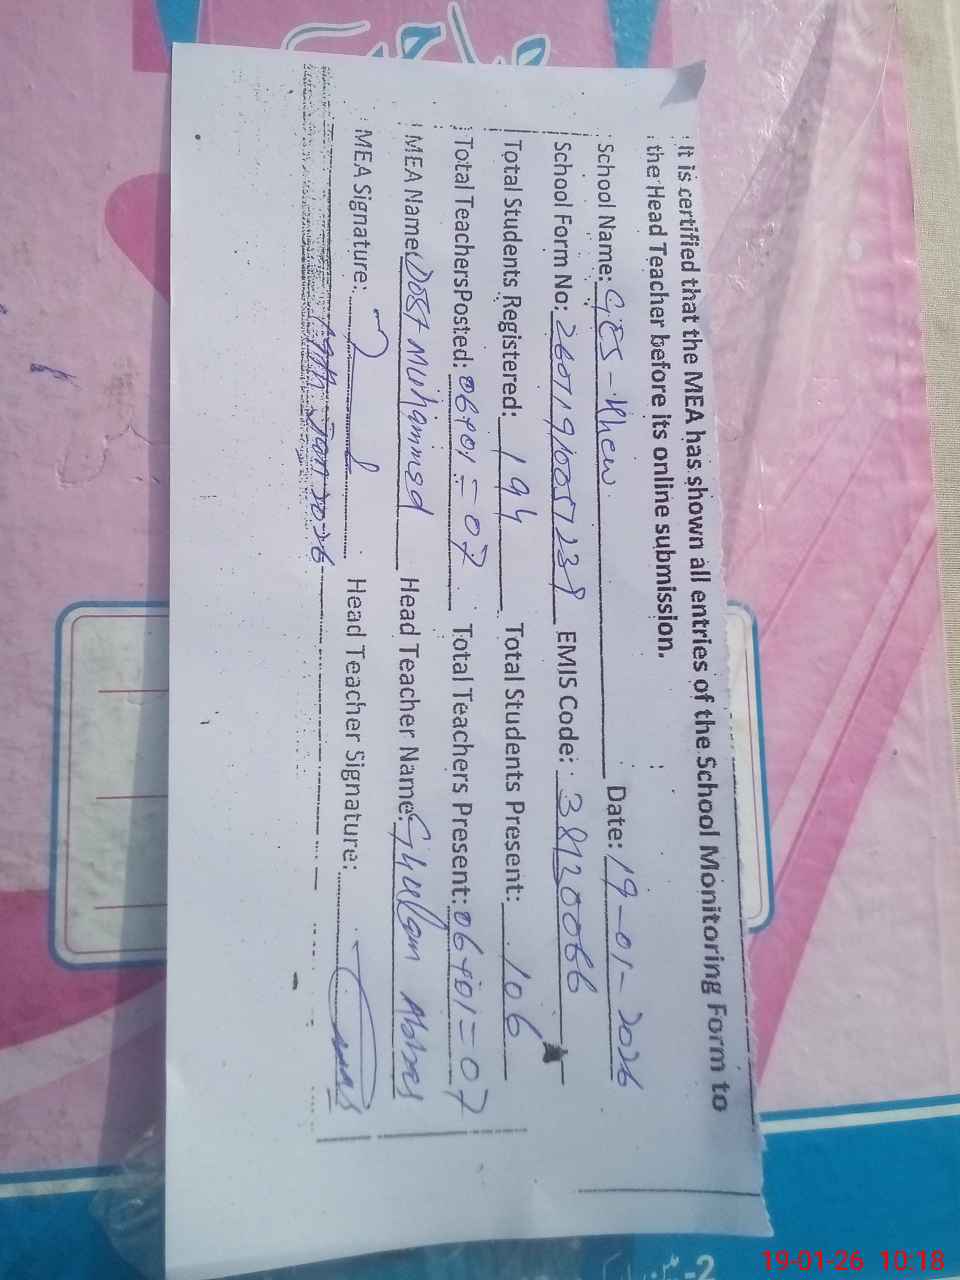 It is certified that the MEA has shown all entries of the School Monitoring Form to
the Head Teacher before its online submission.
School Name: GES - Khew Date: 19-01-2026
School Form No: 260119100S7238 EMIS Code: 38120066
Total Students Registered: 194 Total Students Present: 106
Total TeachersPosted: 06+01=07 Total Teachers Present: 06+01=07
MEA Name: Dost Muhammed Head Teacher Name: Ghulam Abbas
MEA Signature: Head Teacher Signature:
19th Jan 2026
2-
19-01-26 10:18